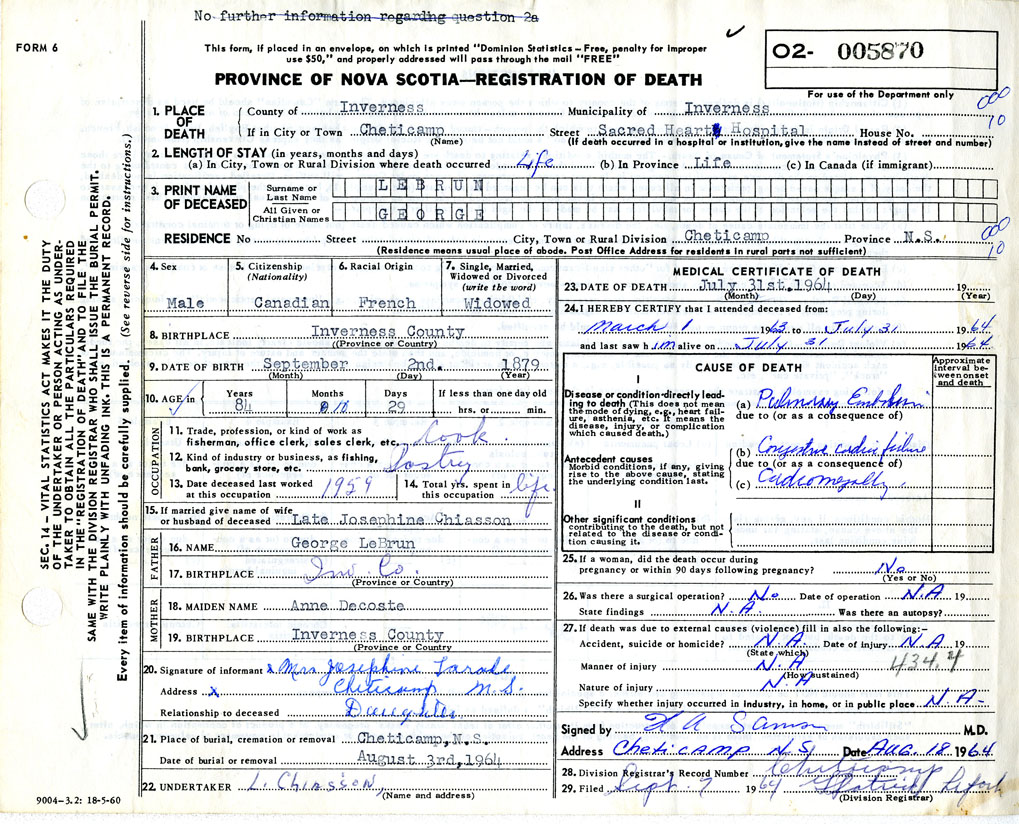 No further information regarding question 2a
FORM 6
This form, if placed in an envelope, on which is printed "Dominion Statistics – Free, penalty for improper
use $50," and properly addressed will pass through the mail "FREE"
PROVINCE OF NOVA SCOTIA—REGISTRATION OF DEATH
O2- 005870
For use of the Department only
000
10
1. PLACE OF DEATH
County of Inverness Municipality of Inverness
If in City or Town Cheticamp Street Sacred Heart Hospital House No.
(Name) (If death occurred in a hospital or institution, give the name instead of street and number)
2. LENGTH OF STAY (in years, months and days)
(a) In City, Town or Rural Division where death occurred Life (b) In Province Life (c) In Canada (if immigrant)
3. PRINT NAME OF DECEASED
Surname or Last Name LEBRUN
All Given or Christian Names GEORGE
000
10
RESIDENCE No Street City, Town or Rural Division Cheticamp Province N.S.
(Residence means usual place of abode. Post Office Address for residents in rural parts not sufficient)
4. Sex Male
5. Citizenship (Nationality) Canadian
6. Racial Origin French
7. Single, Married, Widowed or Divorced (write the word) Widowed
8. BIRTHPLACE Inverness County
((Province or County)
9. DATE OF BIRTH September 2nd. 1879
(Month) (Day) (Year)
10. AGE in Years 84 Months 10 Days 29 If less than one day old hrs. or min.
OCCUPATION
11. Trade, profession, or kind of work as
fisherman, office clerk, sales clerk, etc. Cook.
12. Kind of industry or business, as fishing,
bank, grocery store, etc.
13. Date deceased last worked
at this occupation 1959
14. Total yrs. spent in
this occupation life
15. If married give name of wife
or husband of deceased Late Josephine Chiasson
FATHER
16. NAME George LeBrun
17. BIRTHPLACE Inv. Co.
(Province or County)
MOTHER
18. MAIDEN NAME Anne Decoste
19. BIRTHPLACE Inverness County
(Province or County)
20. Signature of informant x Mrs Josephine
Address x Cheticamp N.S.
Relationship to deceased Daughter
21. Place of burial, cremation or removal Cheticamp, N.S.
Date of burial or removal August 3rd, 1964
22. UNDERTAKER L. Chiasson,
(Name and address)
9004—3.2: 18-5-60
MEDICAL CERTIFICATE OF DEATH
23. DATE OF DEATH July 31st. 1964 19
(Month) (Day) (Year)
24. I HEREBY CERTIFY that I attended deceased from:
March 1 1963 to July 31 1964
and last saw him alive on July 31 1964
CAUSE OF DEATH
Approximate interval between onset and death
I
Disease or condition directly leading to death (This does not mean the mode of dying, e.g., heart failure, asthenia, etc. It means the disease, injury, or complication which caused death.)
(a) Pulmonary Embolism
due to (or as a consequence of)
Antecedent causes
Morbid conditions, if any, giving rise to the above cause, stating the underlying condition last.
(b) Congestive cardiac failure
due to (or as a consequence of)
(c) Cardiomegally.
II
Other significant conditions
contributing to the death, but not related to the disease or condition causing it.
25. If a woman, did the death occur during
pregnancy or within 90 days following pregnancy? No
(Yes or No)
26. Was there a surgical operation? No Date of operation N.A 19
State findings N.A Was there an autopsy?
27. If death was due to external causes (violence) fill in also the following:—
Accident, suicide or homicide? N.A Date of injury N.A 19
(State which)
434.4
Manner of injury N.A
(How sustained)
Nature of injury N.A
Specify whether injury occurred in Industry, in home, or in public place N.A-
Signed by M.D.
Address Cheticamp N.S. Date Aug. 18 1964
28. Division Registrar's Record Number Cheticamp
29. Filed Sept. 7 1964
(Division Registrar)
SEC. 14 – VITAL STATISTICS ACT MAKES IT THE DUTY
OF THE UNDERTAKER OR PERSON ACTING AS UNDER-
TAKER TO OBTAIN ALL THE PARTICULARS REQUIRED
IN THE "REGISTRATION OF DEATH" AND TO FILE THE
SAME WITH THE DIVISION REGISTRAR WHO SHALL ISSUE THE BURIAL PERMIT.
WRITE PLAINLY WITH UNFADING INK. THIS IS A PERMANENT RECORD.
Every item of information should be carefully supplied. (See reverse side for instructions.)